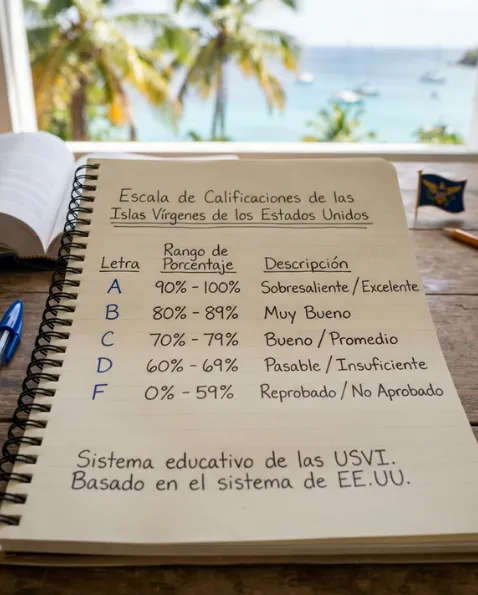 Escala de Calificaciones de las
Islas Vírgenes de los Estados Unidos
Letra Rango de Porcentaje Descripción
A 90% - 100% Sobresaliente / Excelente
B 80% - 89% Muy Bueno
C 70% - 79% Bueno / Promedio
D 60% - 69% Pasable / Insuficiente
F 0% - 59% Reprobado / No Aprobado
Sistema educativo de las USVI.
Basado en el sistema de EE.UU.